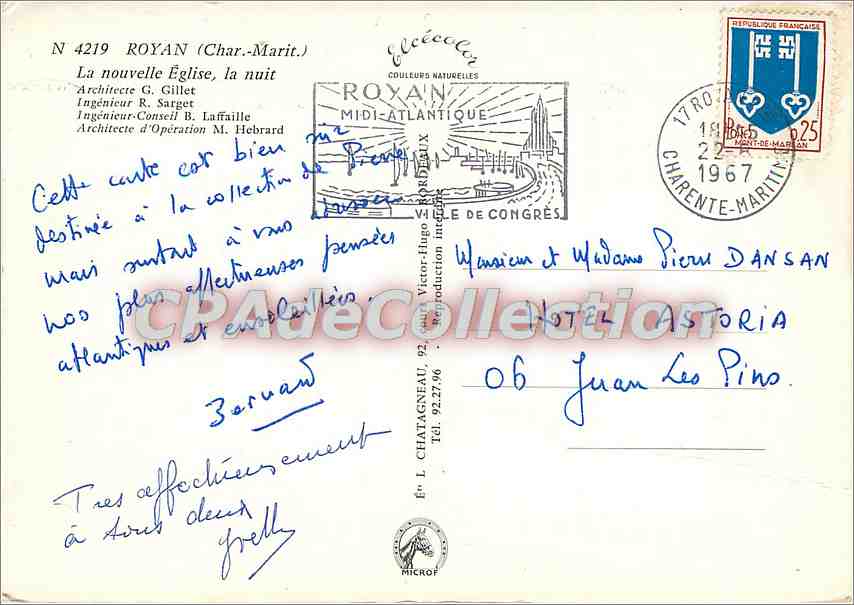 N 4219 ROYAN (Char.-Marit.)
La nouvelle Église, la nuit
Architecte G. Gillet
Ingénieur R. Sarget
Ingénieur-Conseil B. Laffaille
Architecte d'Opération M. Hebrard
Elcécolor
COULEURS NATURELLES
ROYAN
MIDI-ATLANTIQUE
VILLE DE CONGRÈS
REPUBLIQUE FRANÇAISE
POSTES
0,25
MONT-DE-MARSAN
17 ROYAN
18H
22-
1967
CHARENTE-MARITIME
Cette carte est bien sûr
destinée à la collection de Pierre
mais surtout à vous
nos plus affectueuses pensées
atlantiques et ensoleillées.
Bernard
Très affectueusement
à tous deux
Monsieur et Madame Pierre DANSAN
HOTEL ASTORIA
06 Juan Les Pins.
Éon L. CHATAGNEAU, 92, cours Victor-Hugo BORDEAUX
Tél. 92.27.96 - Reproduction Interdite
MICROF
CPAdeCollection.com